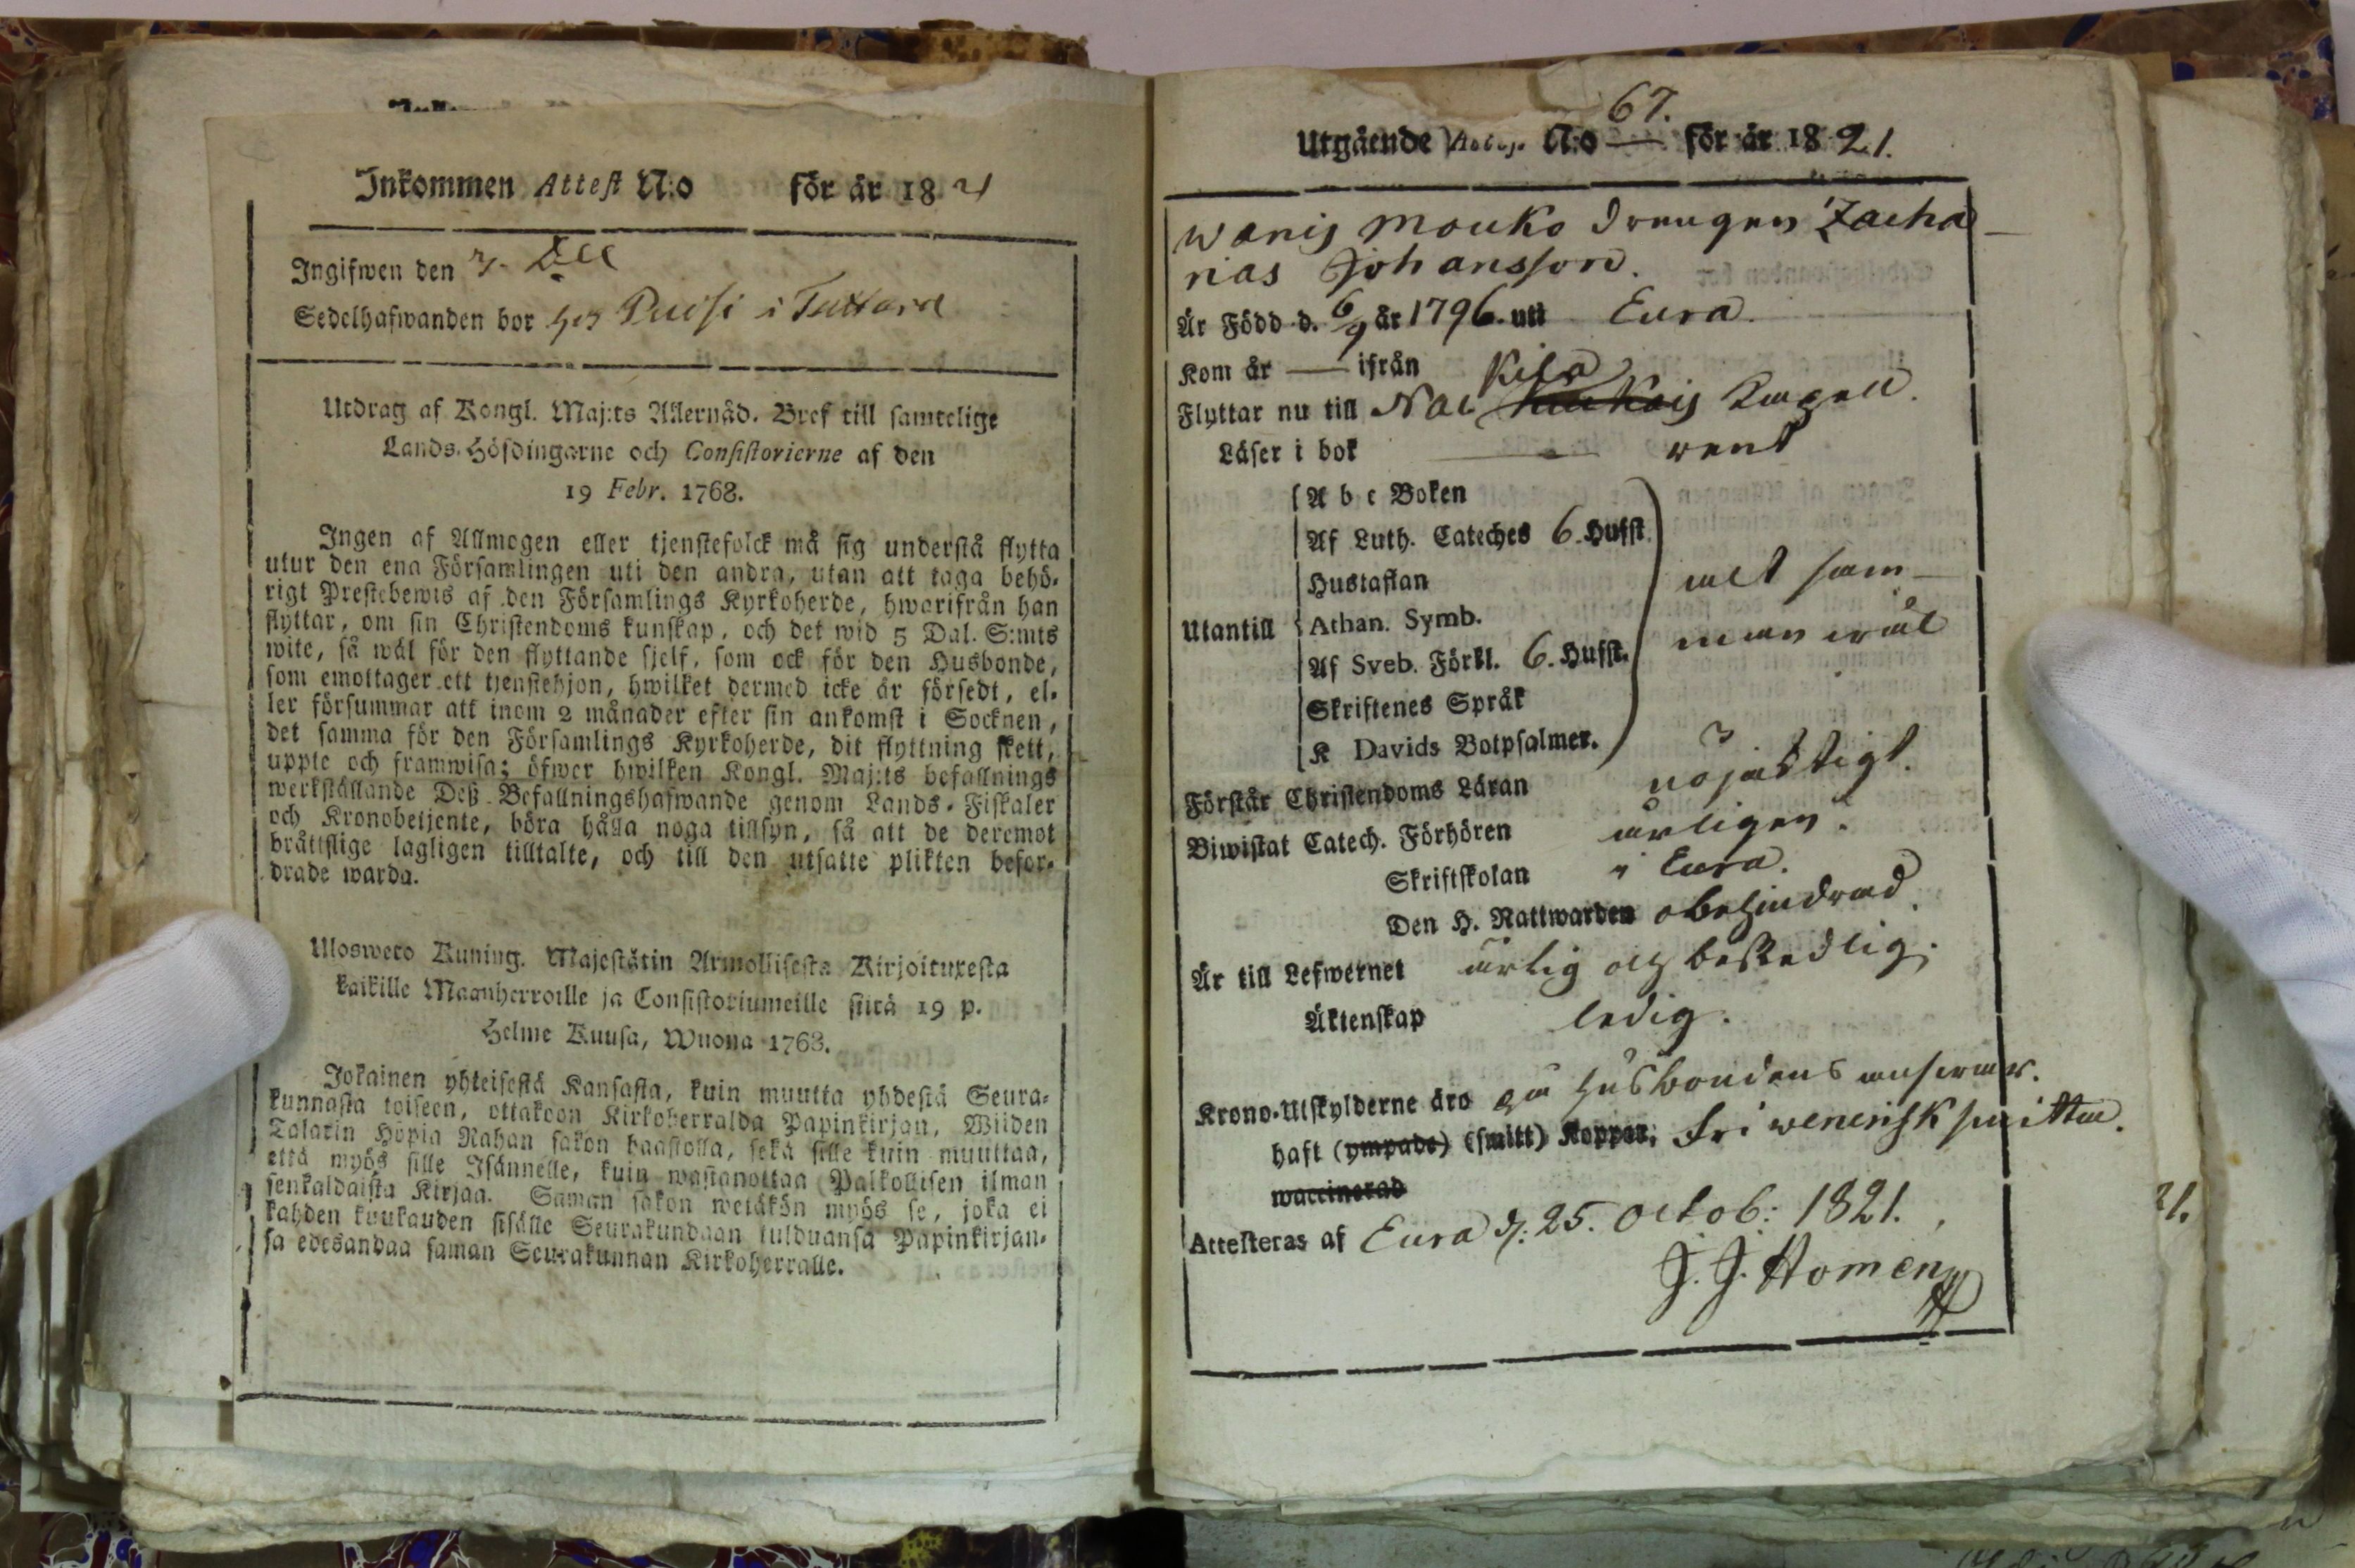 Inkommen Attest N:o för år 1821
Ingifwen den 7. Dec
Sedelhafwanden bor hos Puisi i Tuttara
Utdrag af Kongl. Maj:ts Allernåd. Bref till samtelige
Lands-Höfdingarne och Consistorierne af den
19 Febr. 1768.
Ingen af Allmogen eller tjenstefolck må sig understå flytta
utur den ena Församlingen uti den andra, utan att taga behö-
rigt Prestebewis af den Församlings Kyrkoherde, hwarifrån han
flyttar, om sin Christendoms kunskap, och det wid 5 Dal. S:mts
wite, så wäl för den flyttande sjelf, som ock för den Husbonde,
som emottager ett tjenstehjon, hwilket dermed icke är försedt, el-
ler försummar att inom 2 månader efter sin ankomst i Socknen,
det samma för den Församlings Kyrkoherde, dit flyttning skett,
uppte och framwisa; öfwer hwilken Kongl. Maj:ts befallnings
werkställande Deß Befallningshafwande genom Lands-Fiskaler
och Kronobetjente, böra hålla noga tillsyn, så att de deremot
bråttslige lagligen tilltalte, och till den utsatte plikten befor-
drade warda.
Uloswero Kuning. Majestätin Armollisesta Kirjoituxesta
kaikille Maanherroille ja Consistoriumeille siitä 19 p.
Helme Kuusa, Wuona 1768.
Jokainen yhteisestä Kansasta, kuin muutta yhdestä Seura-
kunnasta toiseen, ottakoon Kirkoherralda Papinkirjan, Wiiden
Talarin Hopia Rahan sakon haastolla, sekä sille kuin muuttaa,
että myös sille Isännelle, kuin wastanottaa Palkollisen ilman
senkaldaista Kirjaa. Saman sakon wetäkön myös se, joka ei
kahden kuukauden sisälle Seurakundaan tulduansa Papinkirjan-
sa edesandaa saman Seurakunnan Kirkoherralle.
67.
Utgående Attest N:o för år 1821.
Wanij Mouko Drengen Zacha-
rias Johansson.
Är Född d. 6/9 år 1796. uti Eura.
Kom år — ifrån Kila
Flyttar nu till Kapell.
Läser i bok rent
A b c Boken
Af Luth. Cateches 6. Hufst.
Hustaflan alt sam-
Utantill Athan. Symb.
Af Sveb. Förkl. 6. Hufst. man wäl
Skriftenes Språk
K Davids Botpsalmer.
Förstår Christendoms Läran nöjaktigt.
Biwistat Catech. Förhören årligen.
Skriftskolan i Eura.
Den H. Nattwarden obehindrad.
Är till Lefwernet ärlig och beskedlig.
Äktenskap ledig.
Krono-Utskylderne äro på husbondens answar.
haft (ympade) (smitt) Koppor, Fri wenerisk smitta.
waccinerad
Attesteras af Eura d: 25. Octob: 1821.
J. J. Homen
21.